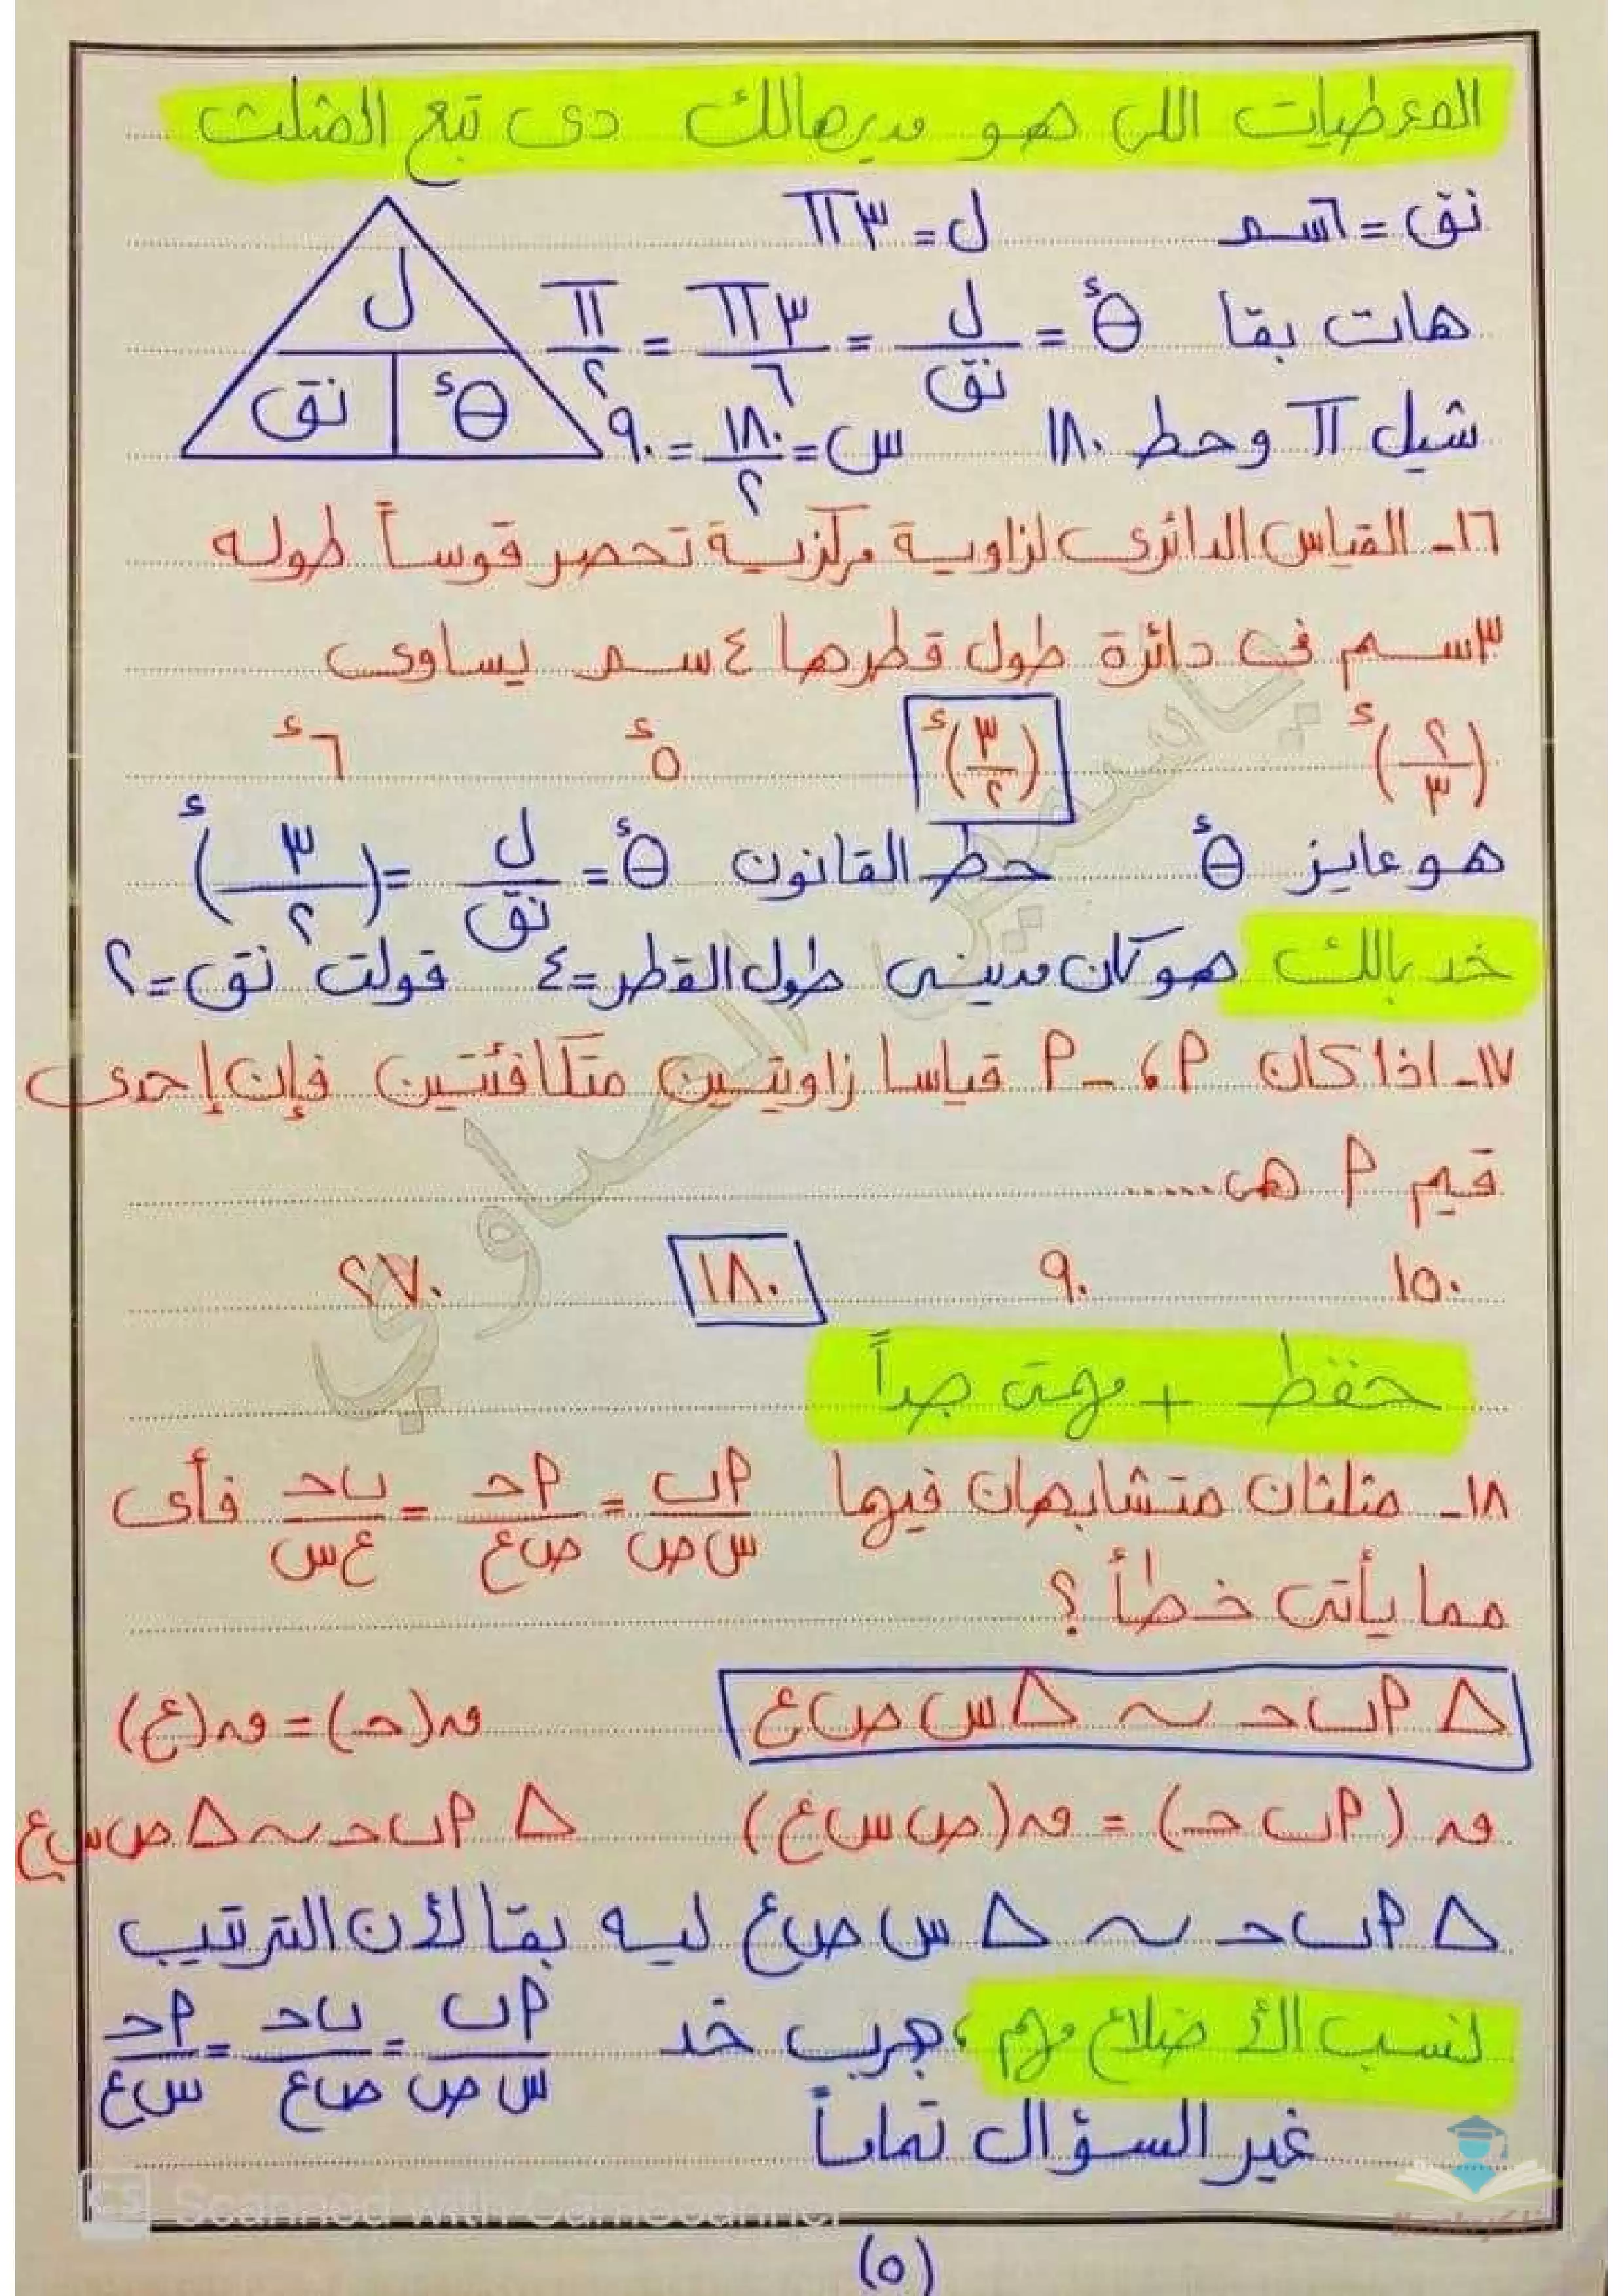 المعطيات اللى هو مديهالك دى تبع المثلث
نق = ٦سم ل = ٣π
هات بقا θء = ل/نق = ٣π/٦ = π/٢
ل
نق θء
شيل π وحط ١٨٠ س = ١٨٠/٢ = ٩٠
١٦- القياس الدائرى لزاوية مركزية تحصر قوساً طوله
٣سم فى دائرة طول قطرها ٤سم يساوى
(٢/٣)ء (٣/٢)ء ٥ء ٦ء
هو عايز θء حط القانون θء = ل/نق = (٣/٢)ء
خد بالك هو كان مدينى طول القطر=٤ قولت نق=٢
١٧- اذا كان ٩، -٩ قياسا زاويتين متكافئتين فإن إحدى
قيم ٩ هى......
١٥٠ ٩٠ ١٨٠ ٢٧٠
حفظ + مهمة جداً
١٨- مثلثان متشابهان فيها ٩ب/س ص = ٩ح/ص ع = ب ح/ع س فأى
مما يأتى خطأ ؟
△ ٩ب ح ~ △ س ص ع ق(ح) = ق(ع)
ق (٩ب ح) = ق(ص س ع) △ ٩ب ح ~ △ ص س ع
△ ٩ب ح ~ △ س ص ع ليه بقا لأن الترتيب
لنسب الأضلاع مهم، جرب خد ٩ب/س ص = ب ح/ص ع = ٩ح/س ع
غير السؤال تماماً
Scanned with CamScanner
(٥)